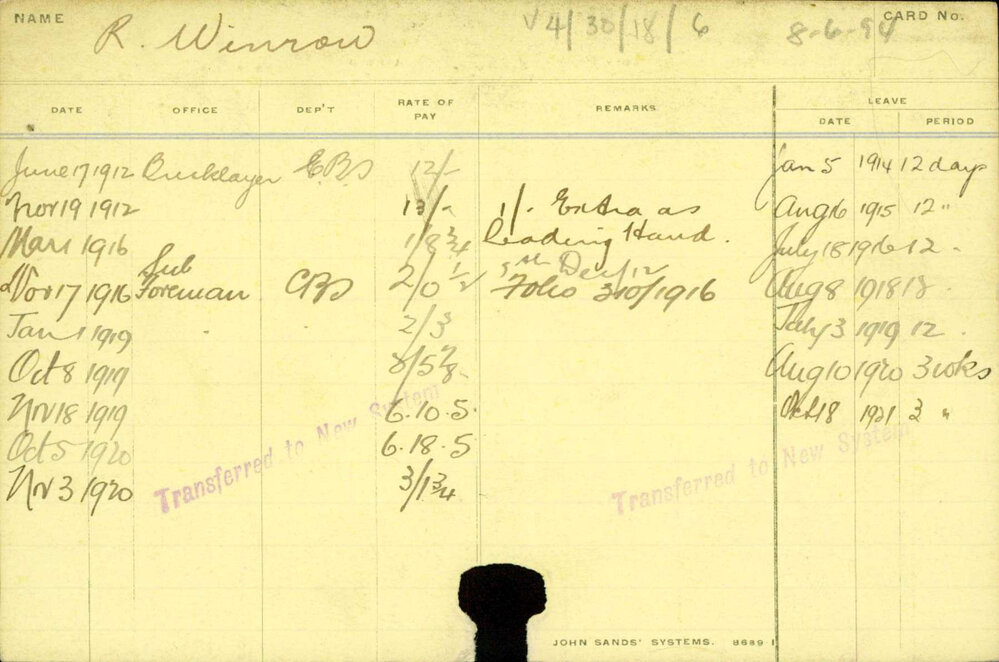 NAME R. Winrow V4/30/18/6 8-6-94 CARD No.
LEAVE
DATE OFFICE DEP'T RATE OF PAY REMARKS DATE PERIOD
June 17 1912 Bricklayer 12/- Jan 5 1914 12 days
Nov 19 1912 13/- 1/- Extra as Aug 16 1915 12 "
Mar 1 1916 1/8 3/4 leading Hand. July 18 1916 12 -
Sub Dec/12
Nov 17 1916 Foreman 2/0 1/2 Folio 310/1916 Aug 8 1918 18 -
Jan 1 1919 2/3 July 3 1919 12 -
Oct 8 1919 Aug 10 1920 3 wks
Nov 18 1919 6.10.5. Oct 18 1921 3 "
Oct 5 1920 6.18.5
Nov 3 1920 3/1 3/4
Transferred to New System
Transferred to New System
JOHN SANDS' SYSTEMS. 8689 1